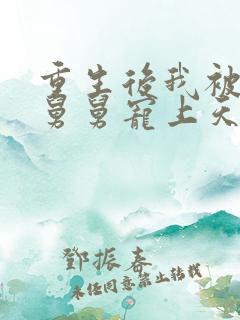 重生後我被
舅舅寵上天
鄧振春
未任同意禁止轉載